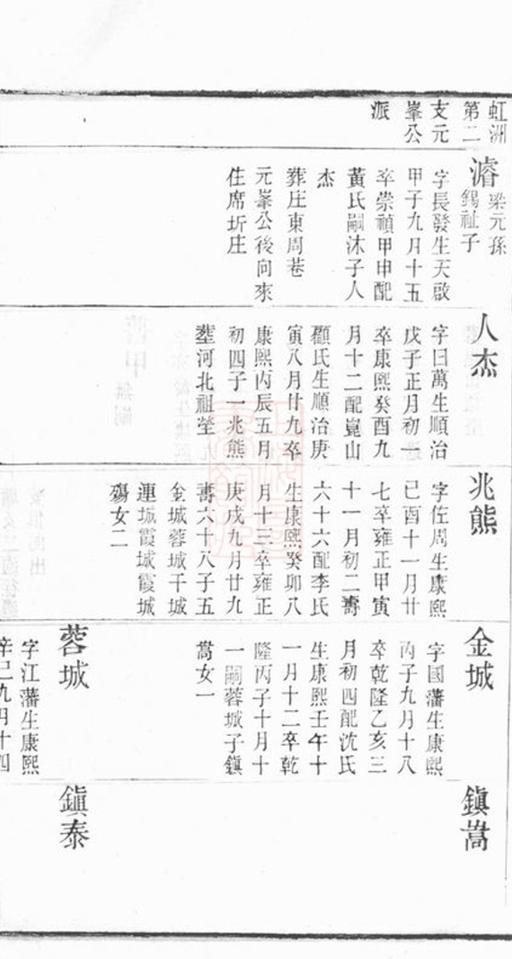 虹洲
第二
支元
峯公
派
濬
梁元孫
錫祉子
字長發生天啟
甲子九月十五
卒崇禎甲申配
黃氏嗣沐子人
杰
葬庄東周巷
元峯公後向來
住席圻庄
人杰
字曰萬生順治
戊子正月初一
卒康熙癸酉九
月十二配崑山
顧氏生順治庚
寅八月廿九卒
康熙丙辰五月
初四子一兆熊
塟河北祖塋
兆熊
字佐周生康熙
己酉十一月廿
七卒雍正甲寅
十一月初二壽
六十六配李氏
生康熙癸卯八
月十三卒雍正
庚戌九月廿九
壽六十八子五
金城蓉城干城
運城霞城霞城
殤女二
金城
字國藩生康熙
丙子九月十八
卒乾隆乙亥三
月初四配沈氏
生康熙壬午十
一月十二卒乾
隆丙子十月十
一嗣蓉城子鎮
嵩女一
蓉城
字江藩生康熙
辛巳九月十四
鎮嵩
鎮泰